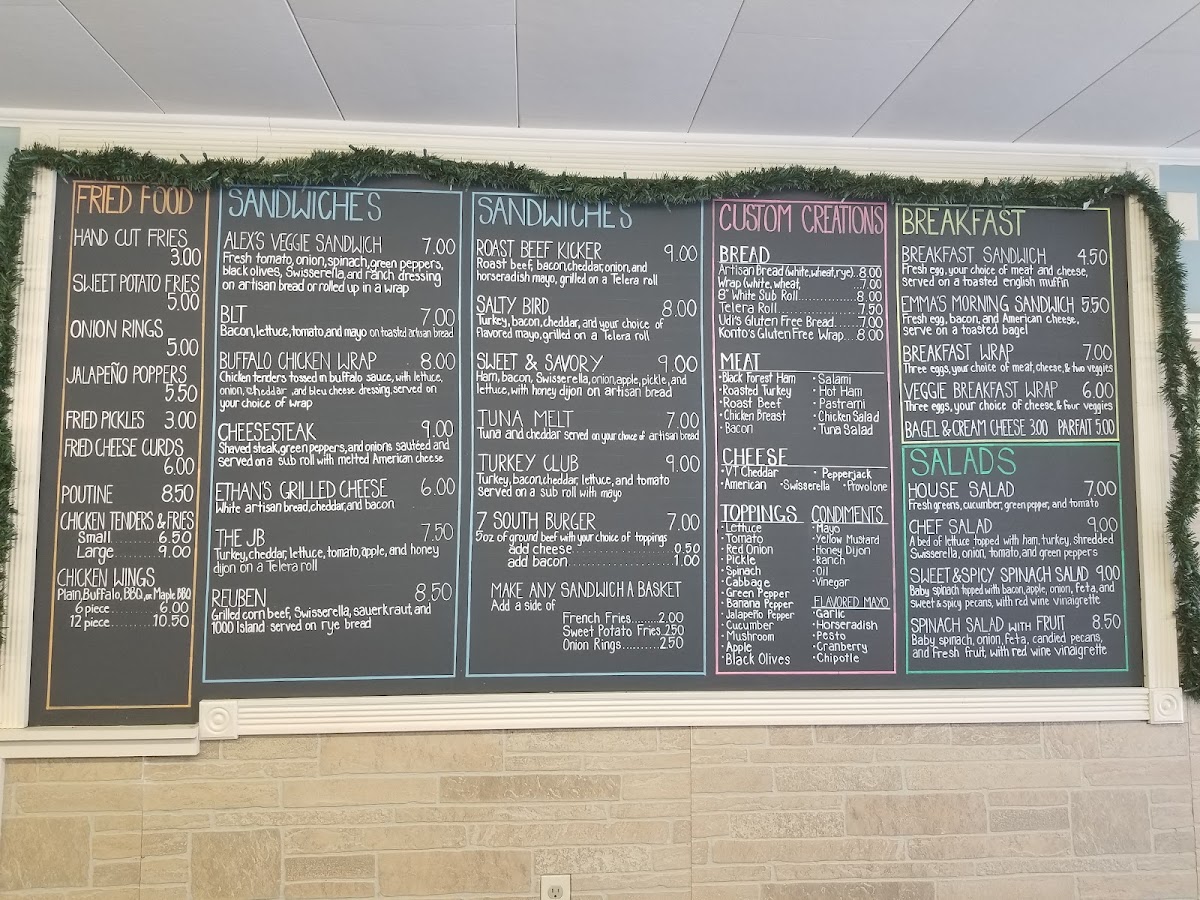 FRIED FOOD
HAND CUT FRIES
3.00
SWEET POTATO FRIES
5.00
ONION RINGS
5.00
JALAPEÑO POPPERS
5.50
FRIED PICKLES 3.00
FRIED CHEESE CURDS
6.00
POUTINE 8.50
CHICKEN TENDERS & FRIES
Small........6.50
Large........9.00
CHICKEN WINGS
Plain, Buffalo, BBQ, or Maple BBQ
6 piece........6.00
12 piece........10.50
SANDWICHES
ALEX'S VEGGIE SANDWICH 7.00
Fresh tomato, onion, spinach, green peppers,
black olives, Swisserella, and ranch dressing
on artisan bread or rolled up in a wrap
BLT 7.00
Bacon, lettuce, tomato, and mayo on toasted artisan bread
BUFFALO CHICKEN WRAP 8.00
Chicken tenders tossed in buffalo sauce, with lettuce,
onion, cheddar, and bleu cheese dressing, served on
your choice of wrap
CHEESESTEAK 9.00
Shaved steak, green peppers, and onions sautéed and
served on a sub roll with melted American cheese
ETHAN'S GRILLED CHEESE 6.00
White artisan bread, cheddar, and bacon
THE JB 7.50
Turkey, cheddar, lettuce, tomato, apple, and honey
dijon on a Telera roll
REUBEN 8.50
Grilled corn beef, Swisserella, sauerkraut, and
1000 Island served on rye bread
SANDWICHES
ROAST BEEF KICKER 9.00
Roast beef, bacon, cheddar, onion, and
horseradish mayo, grilled on a Telera roll
SALTY BIRD 8.00
Turkey, bacon, cheddar, and your choice of
flavored mayo, grilled on a Telera roll
SWEET & SAVORY 9.00
Ham, bacon, Swisserella, onion, apple, pickle, and
lettuce, with honey dijon on artisan bread
TUNA MELT 7.00
Tuna and cheddar served on your choice of artisan bread
TURKEY CLUB 9.00
Turkey, bacon, cheddar, lettuce, and tomato
served on a sub roll with mayo
7 SOUTH BURGER 7.00
5oz of ground beef with your choice of toppings
add cheese........0.50
add bacon........1.00
MAKE ANY SANDWICH A BASKET
Add a side of
French Fries........2.00
Sweet Potato Fries..2.50
Onion Rings........2.50
CUSTOM CREATIONS
BREAD
Artisan Bread (white, wheat, rye)..8.00
Wrap (white, wheat, ........7.00
8" White Sub Roll........8.00
Telera Roll........7.50
Udi's Gluten Free Bread........7.00
Konto's Gluten Free Wrap...8.00
MEAT
·Black Forest Ham ·Salami
·Roasted Turkey ·Hot Ham
·Roast Beef ·Pastrami
·Chicken Breast ·Chicken Salad
·Bacon ·Tuna Salad
CHEESE
·VT Cheddar ·Pepperjack
·American ·Swisserella ·Provolone
TOPPINGS
·Lettuce
·Tomato
·Red Onion
·Pickle
·Spinach
·Cabbage
·Green Pepper
·Banana Pepper
·Jalapeño Pepper
·Cucumber
·Mushroom
·Apple
·Black Olives
CONDIMENTS
·Mayo
·Yellow Mustard
·Honey Dijon
·Ranch
·Oil
·Vinegar
FLAVORED MAYO
·Garlic
·Horseradish
·Pesto
·Cranberry
·Chipotle
BREAKFAST
BREAKFAST SANDWICH 4.50
Fresh egg, your choice of meat and cheese,
served on a toasted english muffin
EMMA'S MORNING SANDWICH 5.50
Fresh egg, bacon, and American cheese,
serve on a toasted bagel
BREAKFAST WRAP 7.00
Three eggs, your choice of meat, cheese, & two veggies
VEGGIE BREAKFAST WRAP 6.00
Three eggs, your choice of cheese, & four veggies
BAGEL & CREAM CHEESE 3.00 PARFAIT 5.00
SALADS
HOUSE SALAD 7.00
Fresh greens, cucumber, green pepper, and tomato
CHEF SALAD 9.00
A bed of lettuce topped with ham, turkey, shredded
Swisserella, onion, tomato, and green peppers
SWEET & SPICY SPINACH SALAD 9.00
Baby spinach topped with bacon, apple, onion, feta, and
sweet & spicy pecans, with red wine vinaigrette
SPINACH SALAD WITH FRUIT 8.50
Baby spinach, onion, feta, candied pecans,
and fresh fruit, with red wine vinaigrette